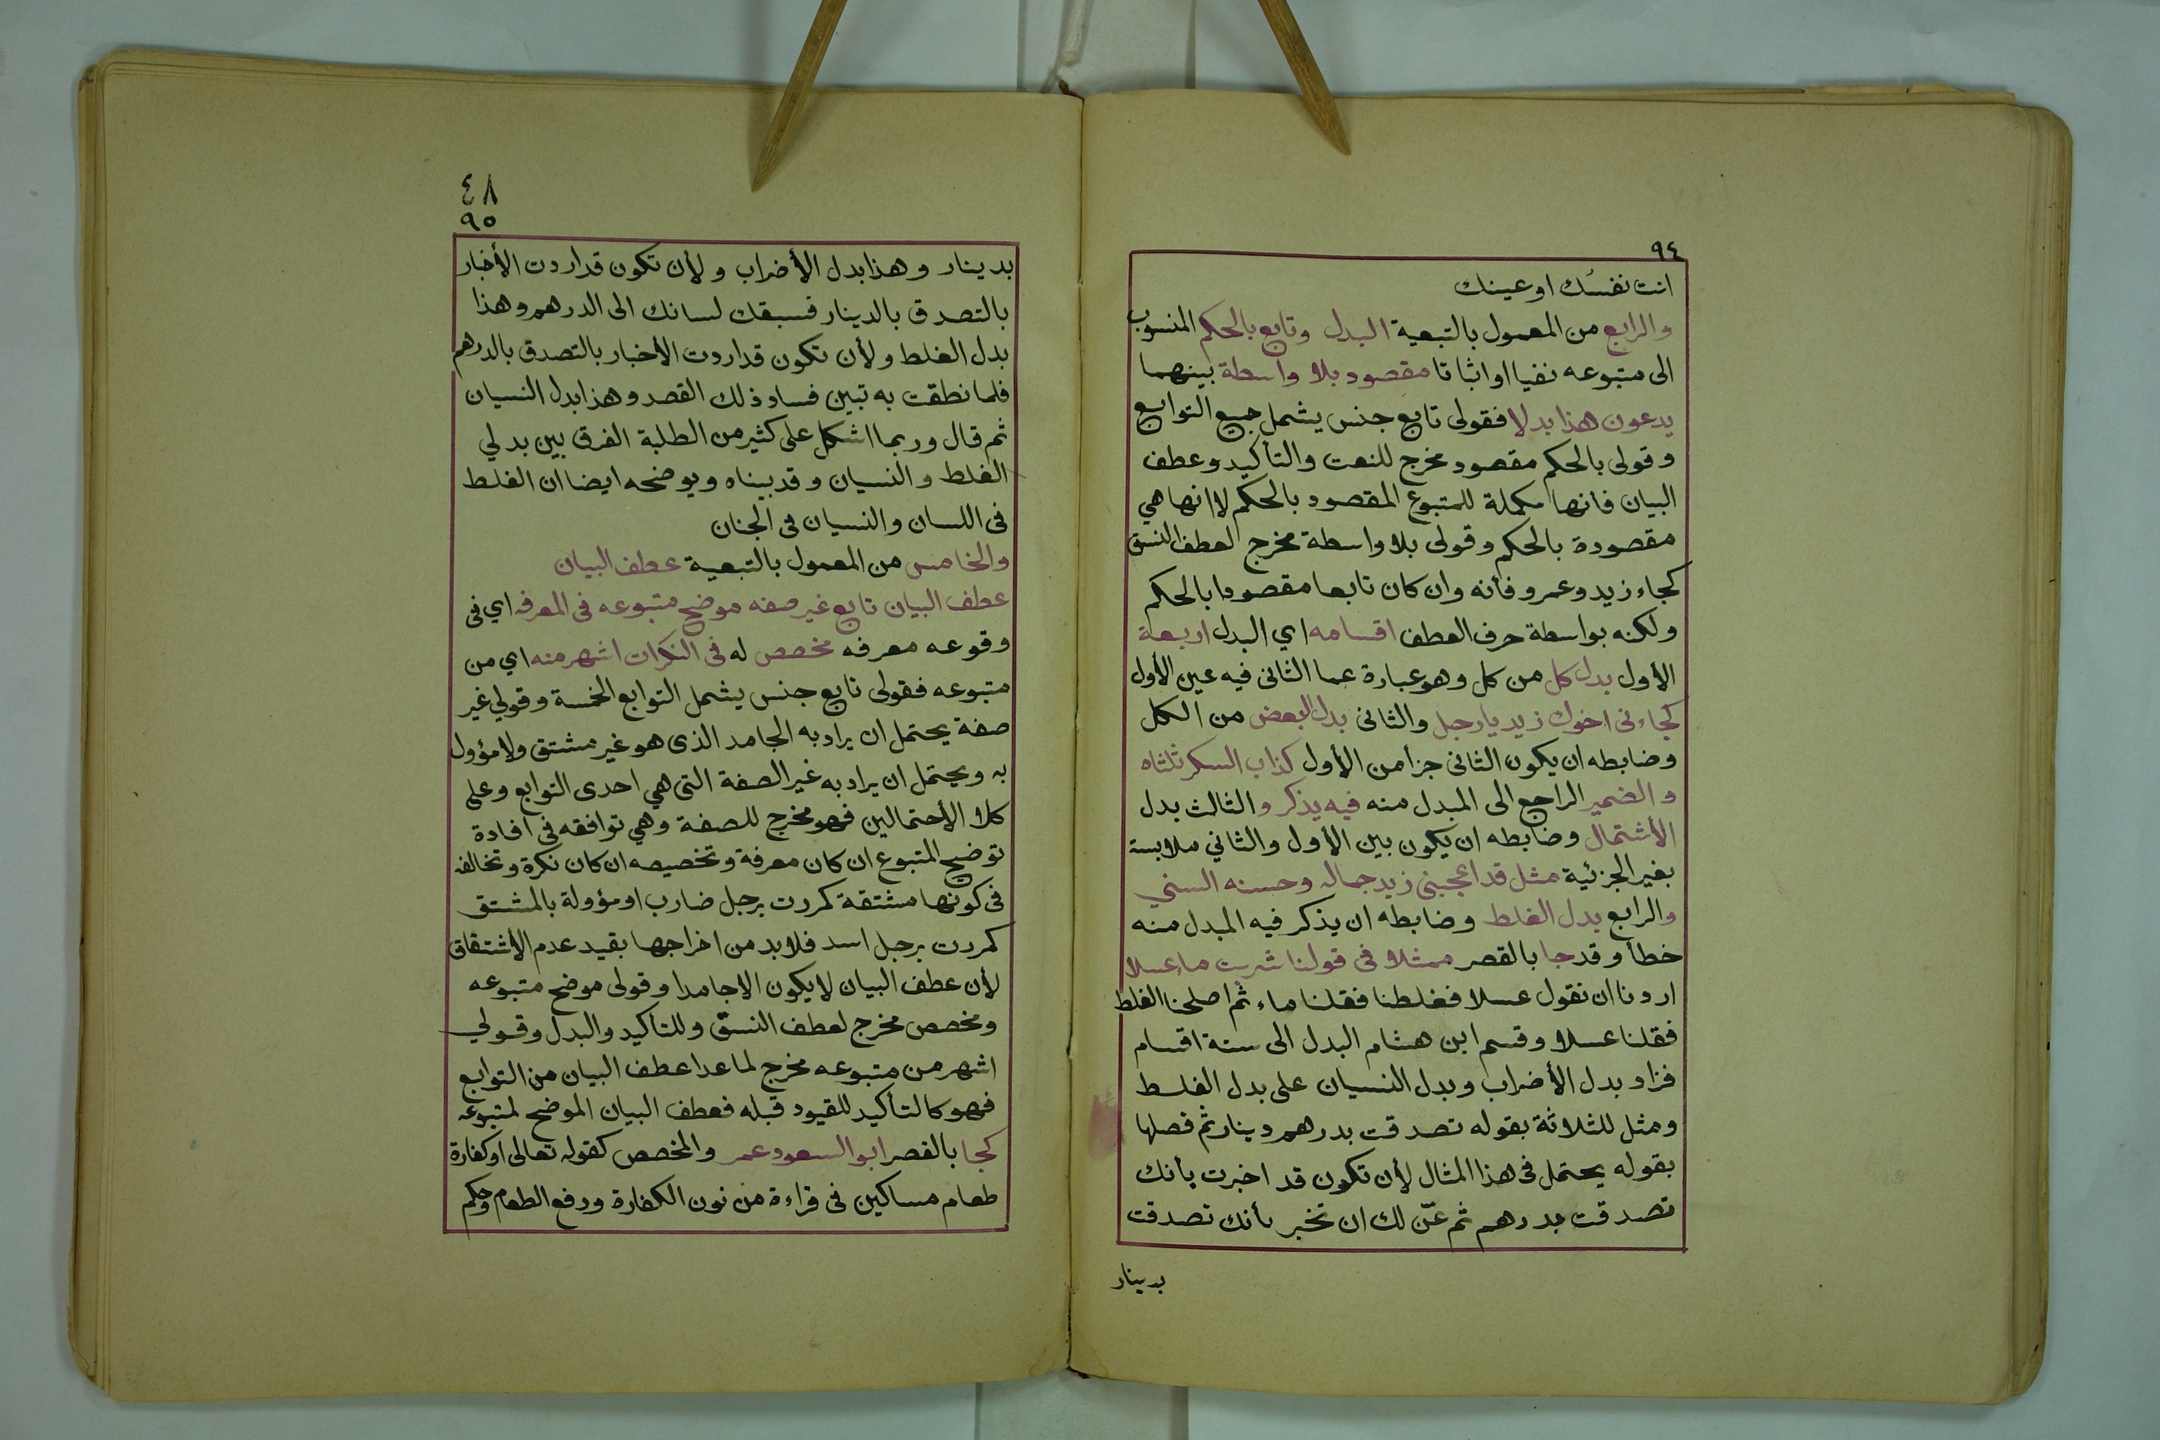 ٩٤
انت نفسُك او عينك
والرابع من المعمول بالتبعية البدل وتابع بالحكم المنسوب
الى متبوعه نفيا او اثباتا مقصود بلا واسطة بينهما
يدعون هذا بدلا فقولى تابع جنس يشمل جميع التوابع
وقولى بالحكم مقصود مخرج للنعت والتأكيد وعطف
البيان فانها مكملة للمتبوع المقصود بالحكم لا انها هي
مقصودة بالحكم وقولى بلا واسطة مخرج لعطف النسق
كجاء زيد وعمرو فأنه وان كان تابعا مقصودا بالحكم
ولكنه بواسطة حرف العطف اقسامه اي البدل اربعة
الأول بدل كل من كل وهو عبارة عما الثانى فيه عين الأول
كجاءنى اخوك زيد يا رجل والثانى بدل البعض من الكل
وضابطه ان يكون الثانى جزأ من الأول كذاب السكر ثلثاه
والضمير الراجع الى المبدل منه فيه يذكر والثالث بدل
الأشتمال وضابطه ان يكون بين الأول والثاني ملابسة
بغير الجزئية مثل قد اعجبنى زيد جماله وحسنه السني
والرابع بدل الغلط وضابطه ان يذكر فيه المبدل منه
خطأ وقد جا بالقصر ممثلا فى قولنا شربت ماء عسلا
اردنا ان نقول عسلا فغلطنا فقلنا ماء ثم اصلحنا الغلط
فقلنا عسلا وقسم ابن هشام البدل الى ستة اقسام
فزاد بدل الأضراب وبدل النسيان على بدل الغلط
ومثل للثلاثة بقوله تصدقت بدرهم دينار ثم فصلها
بقوله يحتمل فى هذا المثال لأن تكون قد اخبرت بأنك
تصدقت بدرهم ثم عنّ لك ان تخبر بأنك تصدقت
بدينار
٤٨
٩٥
بدينار وهذا بدل الأضراب ولأن تكون قد اردت الأخبار
بالتصدق بالدينار فسبقك لسانك الى الدرهم وهذا
بدل الغلط ولأن تكون قد اردت الأخبار بالتصدق بالدرهم
فلما نطقت به تبين فساد ذلك القصد وهذا بدل النسيان
ثم قال وربما اشكل على كثير من الطلبة الفرق بين بدلي
الغلط والنسيان وقد بيناه ويوضحه ايضا ان الغلط
فى اللسان والنسيان فى الجنان
والخامس من المعمول بالتبعية عطف البيان
عطف البيان تابع غير صفه موضح متبوعه فى المعرفه اي فى
وقوعه معرفه مخصص له فى النكرات اشهر منه اي من
متبوعه فقولى تابع جنس يشمل التوابع الخمسة وقولي غير
صفة يحتمل ان يراد به الجامد الذى هو غير مشتق ولا مؤول
به ويحتمل ان يراد به غير الصفة التى هي احدى التوابع وعلى
كلا الأحتمالين فهو مخرج للصفة وهي توافقه فى افادة
توضيح المتبوع ان كان معرفة وتخصيصه ان كان نكرة وتخالفه
فى كونها مشتقة كمررت برجل ضارب او مؤولة بالمشتق
كمررت برجل اسد فلا بد من اخراجها بقيد عدم الأشتقاق
لأن عطف البيان لا يكون الا جامدا وقولى موضح متبوعه
ومخصص مخرج لعطف النسق وللتاكيد والبدل وقولي
اشهر من متبوعه مخرج لما عدا عطف البيان من التوابع
فهو كالتأكيد للقيود قبله فعطف البيان الموضح لمتبوعه
كجا بالقصر ابو السعود عمر والمخصص كقوله تعالى او كفارة
طعام مساكين فى قراءة من نون الكفارة ورفع الطعام وحكم